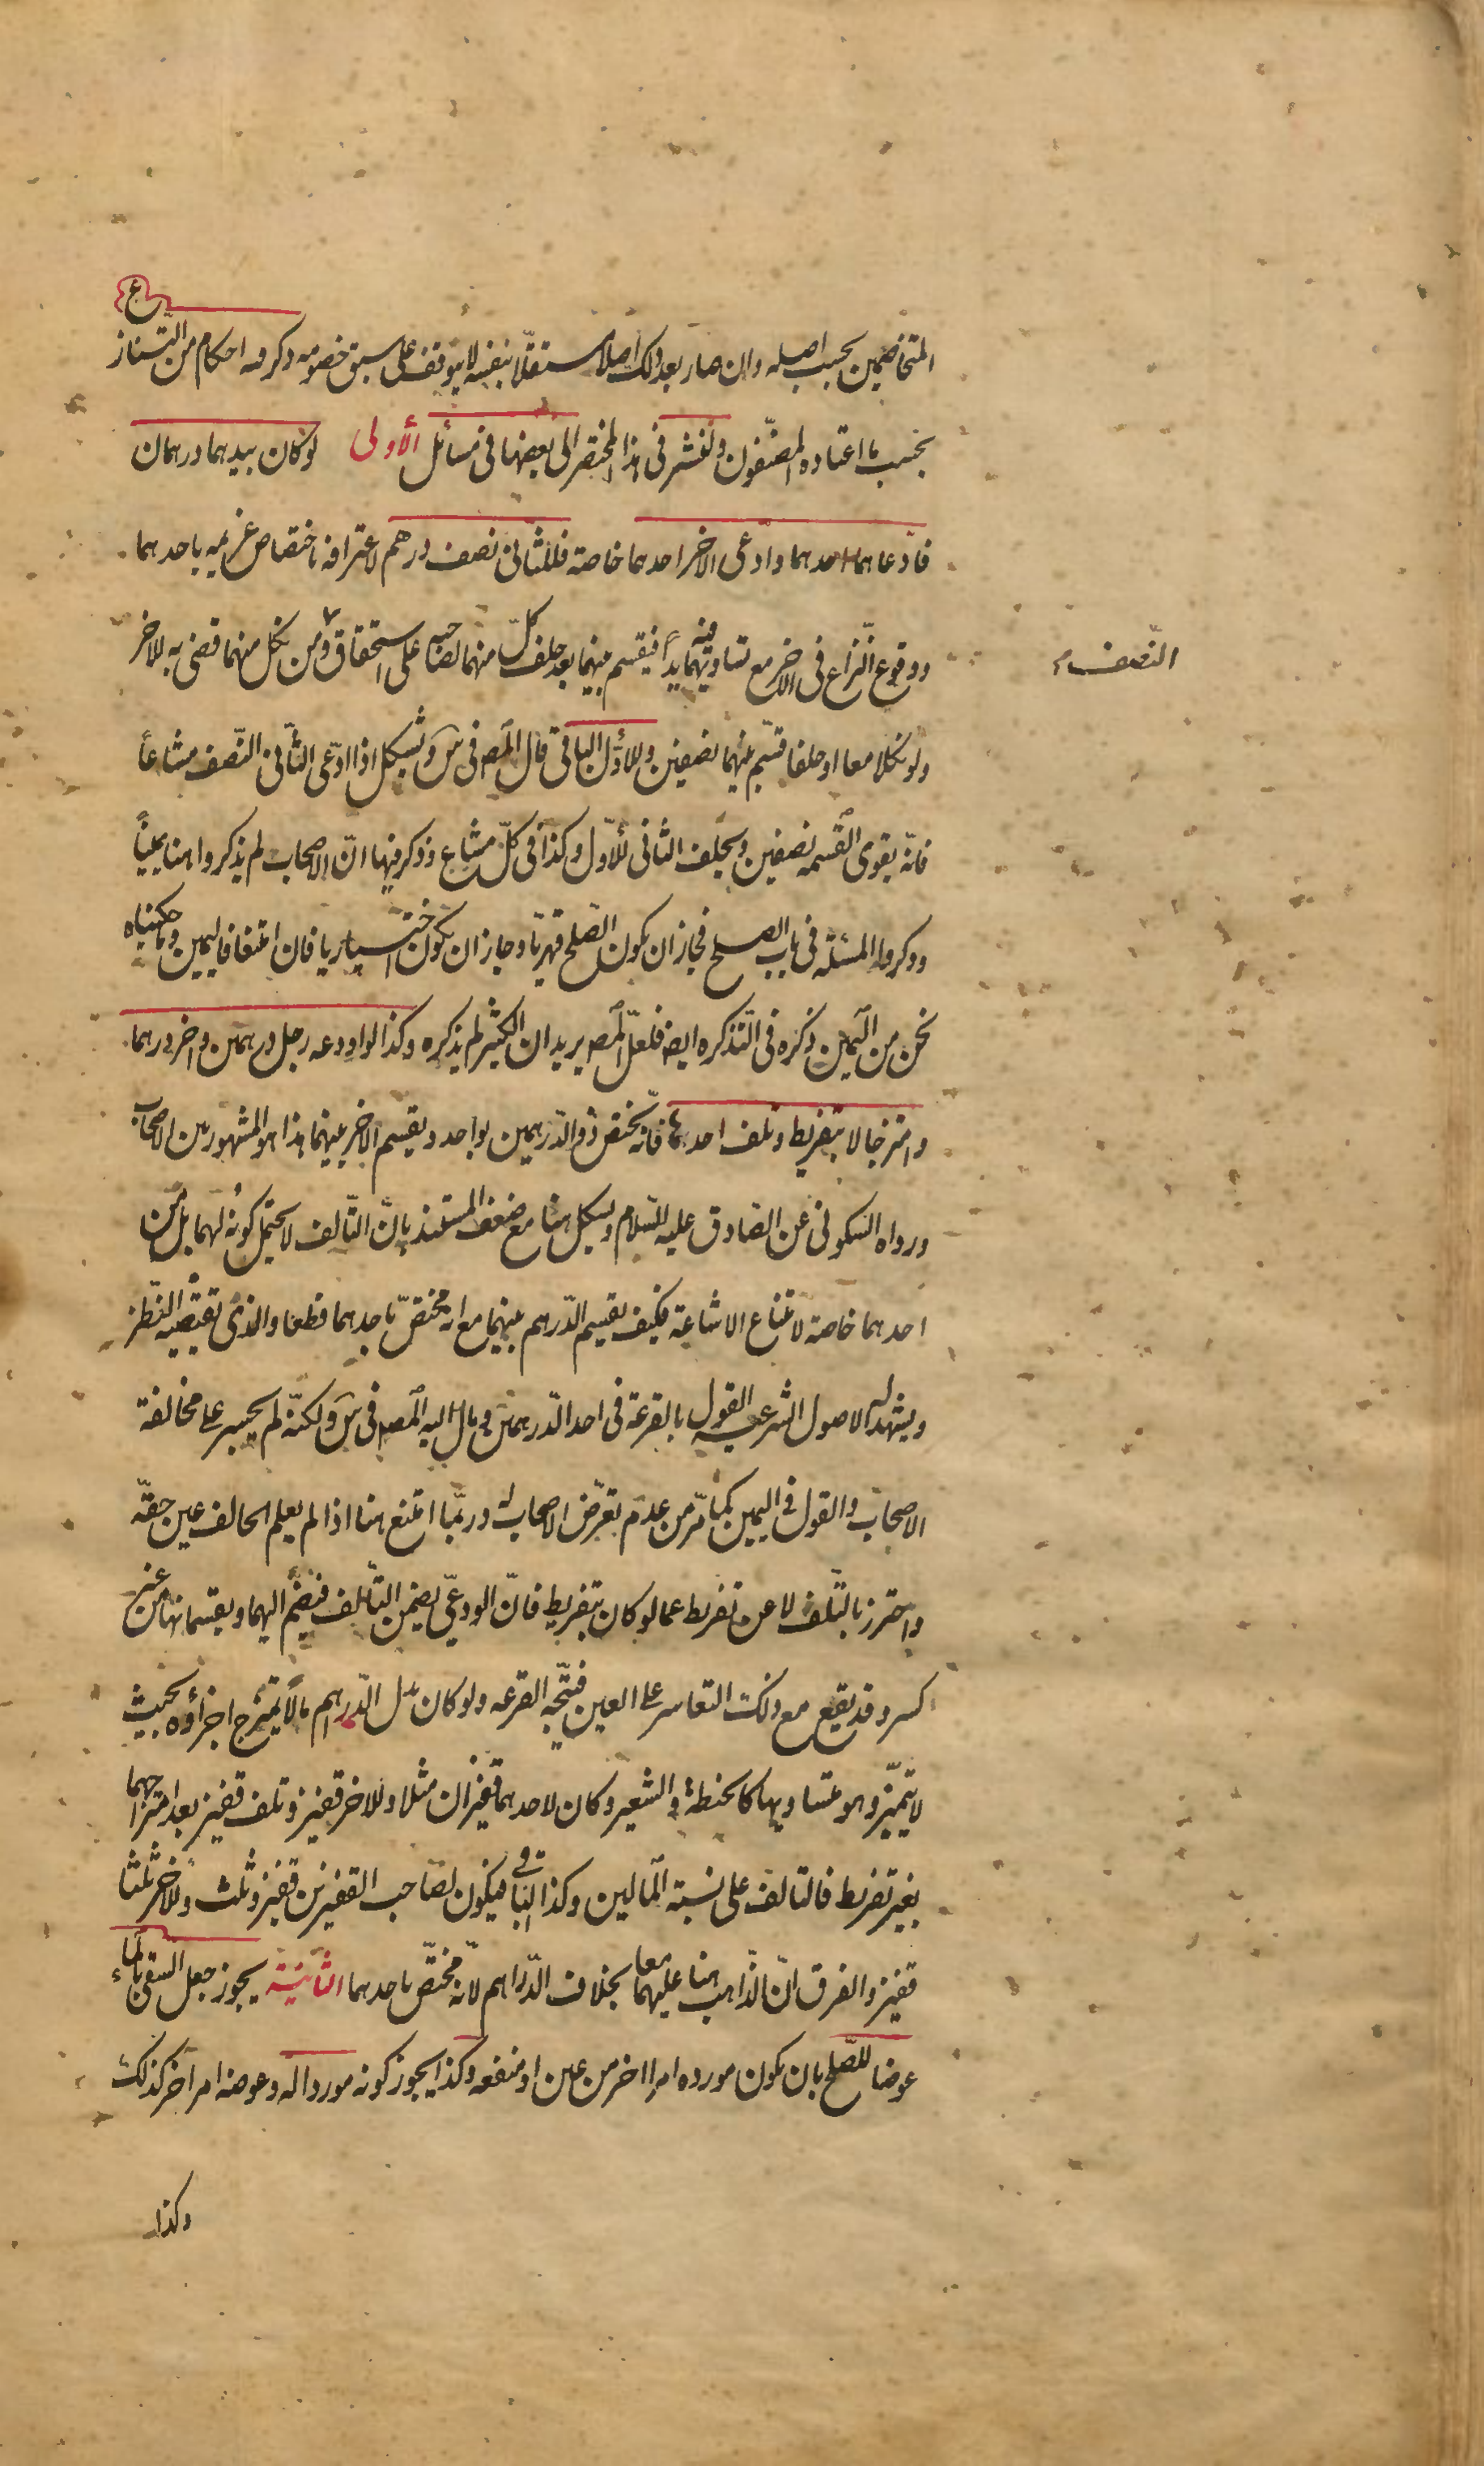 المتخاصمين بحسب اصله وان صار بعد ذلك اصلا مستقلّا بنفسه لا يتوقف على سبق خصومه ذكر فيه احكام من التّنازع
بحسب ما اعتاده المصنّفون ولنشر فى هذا المختصر الى بعضها فى مسائل الأولى لو كان بيدهما درهمان
فادّعاهما احدهما وادّعى الاخر احدهما خاصة فللثانى نصف درهم لاعترافه باختصاص غريمه باحدهما
ووقوع النّزاع فى الاخر مع تساويهما فيه يداً فيقسم بينهما بعد حلف كلّ منهما لصاحبه على استحقاق ومن نكل منهما قضى به للاخر
النّصف
ولو نكلا معا او حلفا قسّم بينهما نصفين وللأوّل الباقى قال المص فى س ويشكل اذا ادّعى الثّانى النّصف مشاعاً
فانّه يقوى القسمه نصفين ويحلف الثانى للأوّل وكذا فى كلّ مشاع وذكر فيها انّ الاصحاب لم يذكروا هنا يميناً
وذكروا المسئلة فى باب الصلح فجاز ان يكون الصّلح قهريّا وجاز ان يكون اختياريا فان امتنعا فاليمين وما حكيناه
نحن من اليمين ذكره فى التّذكره ايض فلعلّ المص يريد ان الكثير لم يذكره وكذا لو اودعه رجل درهمين واخر درهما
وامتزجا لا بتفريط وتلف احدهما فانّه يختص ذو الدّرهمين بواحد ويقسم الاخر بينهما هذا هو المشهور بين الاصحاب
ورواه السكونى عن الصّادق عليه السّلام ويشكل هنا مع ضعف المستند بانّ التّالف لا يحتمل كونه لهما بل من
احدهما خاصة لامتناع الاشاعة فكيف يقسم الدّرهم بينهما مع انه مختصّ باحدهما قطعا والذى يقتضيه النّظر
ويشهد له الاصول الشرعيه القول بالقرعة فى احد الدّرهمين ومال اليه المص فى س ولكنّه لم يجسر على مخالفة
الاصحاب والقول فى اليمين كما مرّ من عدم تعرّض الاصحاب له وربّما امتنع هنا اذا لم يعلم الحالف عين حقّه
واحترز بالتّلف لا عن تفريط عما لو كان بتفريط فانّ الودعيّ يضمن التّالف فيضمّ اليهما ويقتسمانها من غير
كسر وقد يقع مع ذلك التعاسر على العين فيتّجه القرعه ولو كان بدل الدّراهم مالا يمتزج اجزاؤه بحيث
لا يتميّز وهو متساويها كالحنطة والشعير وكان لاحدهما قفيزان مثلا وللاخر قفيز وتلف قفيز بعد امتزاجهما
بغير تفريط فالتالف على نسبة المالين وكذا الباقى فيكون لصاحب القفيزين قفيز وثلث وللاخر ثلثا
قفيز والفرق انّ الذّاهب هنا عليهما معا بخلاف الدّراهم لانّه مختصّ باحدهما الثانية يجوز جعل السقى بالماء
عوضا للصّلح بان يكون مورده امرا اخر من عين او منفعه وكذا يجوز كونه موردا له وعوضه امر آخر كذلك
وكذا